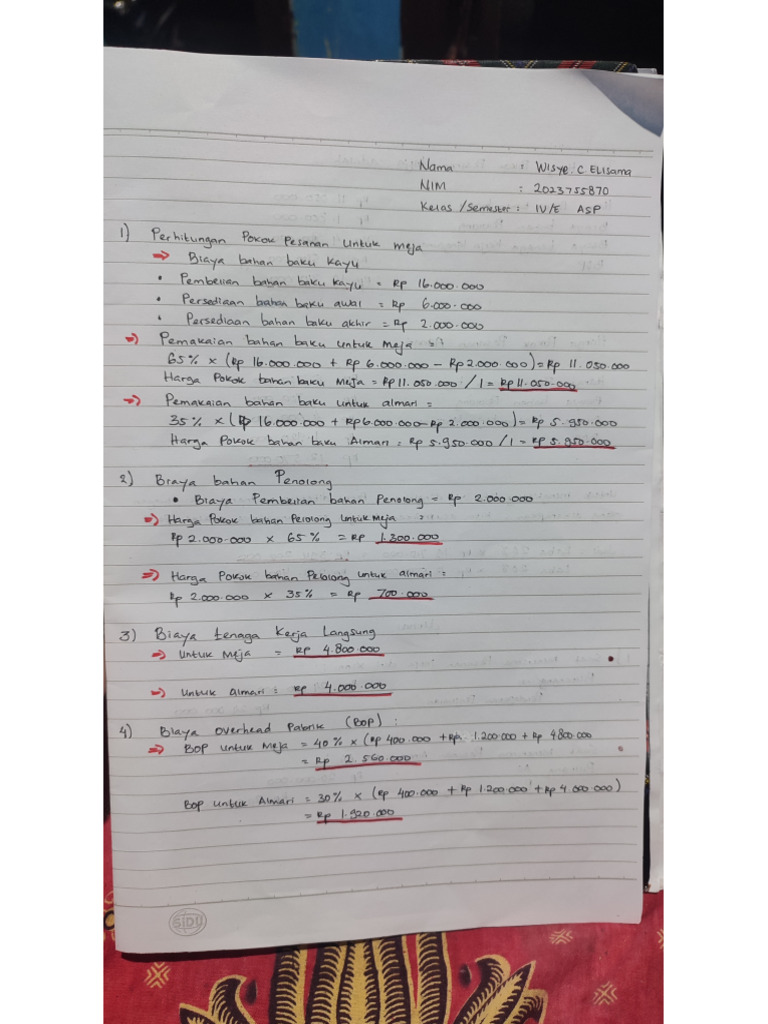 Nama : Wisye C. Elisama
NIM : 2023755870
Kelas /Semester : IV/E ASP
1) Perhitungan Pokok Pesanan Untuk meja
⇒ Biaya bahan baku Kayu
• Pembelian bahan baku kayu = Rp 16.000.000
• Persediaan bahan baku awal = Rp 6.000.000
• Persediaan bahan baku akhir = Rp 2.000.000
⇒ Pemakaian bahan baku untuk Meja :
65% × (Rp 16.000.000 + Rp 6.000.000 – Rp 2.000.000) = Rp 11.050.000
Harga Pokok bahan baku Meja = Rp 11.050.000 / 1 = Rp 11.050.000
⇒ Pemakaian bahan baku untuk almari =
35% × (Rp 16.000.000 + Rp 6.000.000 – Rp 2.000.000) = Rp 5.950.000
Harga Pokok bahan baku Almari = Rp 5.950.000 / 1 = Rp 5.950.000
2) Biaya bahan Penolong
• Biaya Pembelian bahan Penolong = Rp 2.000.000
⇒ Harga Pokok bahan Pelolong Untuk Meja =
Rp 2.000.000 × 65% = Rp 1.300.000
⇒ Harga Pokok bahan Pelolong untuk almari =
Rp 2.000.000 × 35% = Rp 700.000
3) Biaya tenaga Kerja Langsung
⇒ Untuk Meja = Rp 4.800.000
⇒ Untuk Almari = Rp 4.000.000
4) Biaya overhead Pabrik (BOP) :
⇒ BOP untuk Meja = 40% × (Rp 400.000 + Rp 1.200.000 + Rp 4800.000
= Rp 2.560.000
BOP untuk Almari = 30% × (Rp 400.000 + Rp 1.200.000 + Rp 4.000.000)
= Rp 1.920.000
SIDU